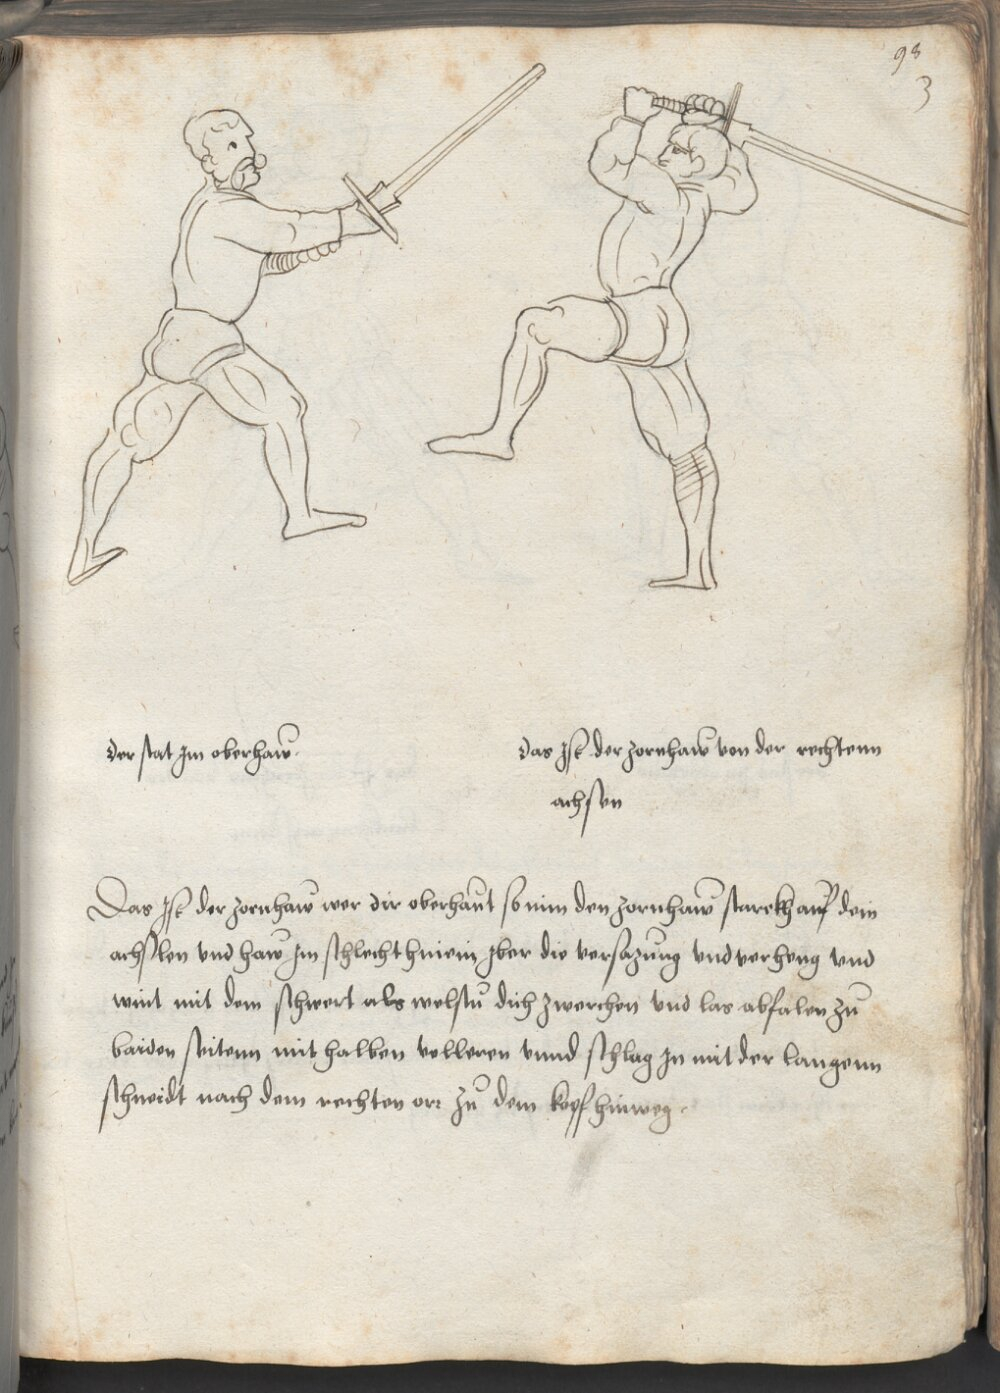 98
3
der stat Im oberhaw
Das Ist der zornhaw von der rechtenn
achslen
Das Ist der zornhaw wer dir oberhaut so nim den zornhaw starckh auf dein
achslen und haw Im schlecht hinein Iber die versazung und verheng und
wint mit dem schwert als welstu dich zwerchen und las abfalen zu
baiden seitenn mit halben velleren unnd schlag In mit der langenn
schneidt nach dem rechten orr zu dem kopf hinweg.